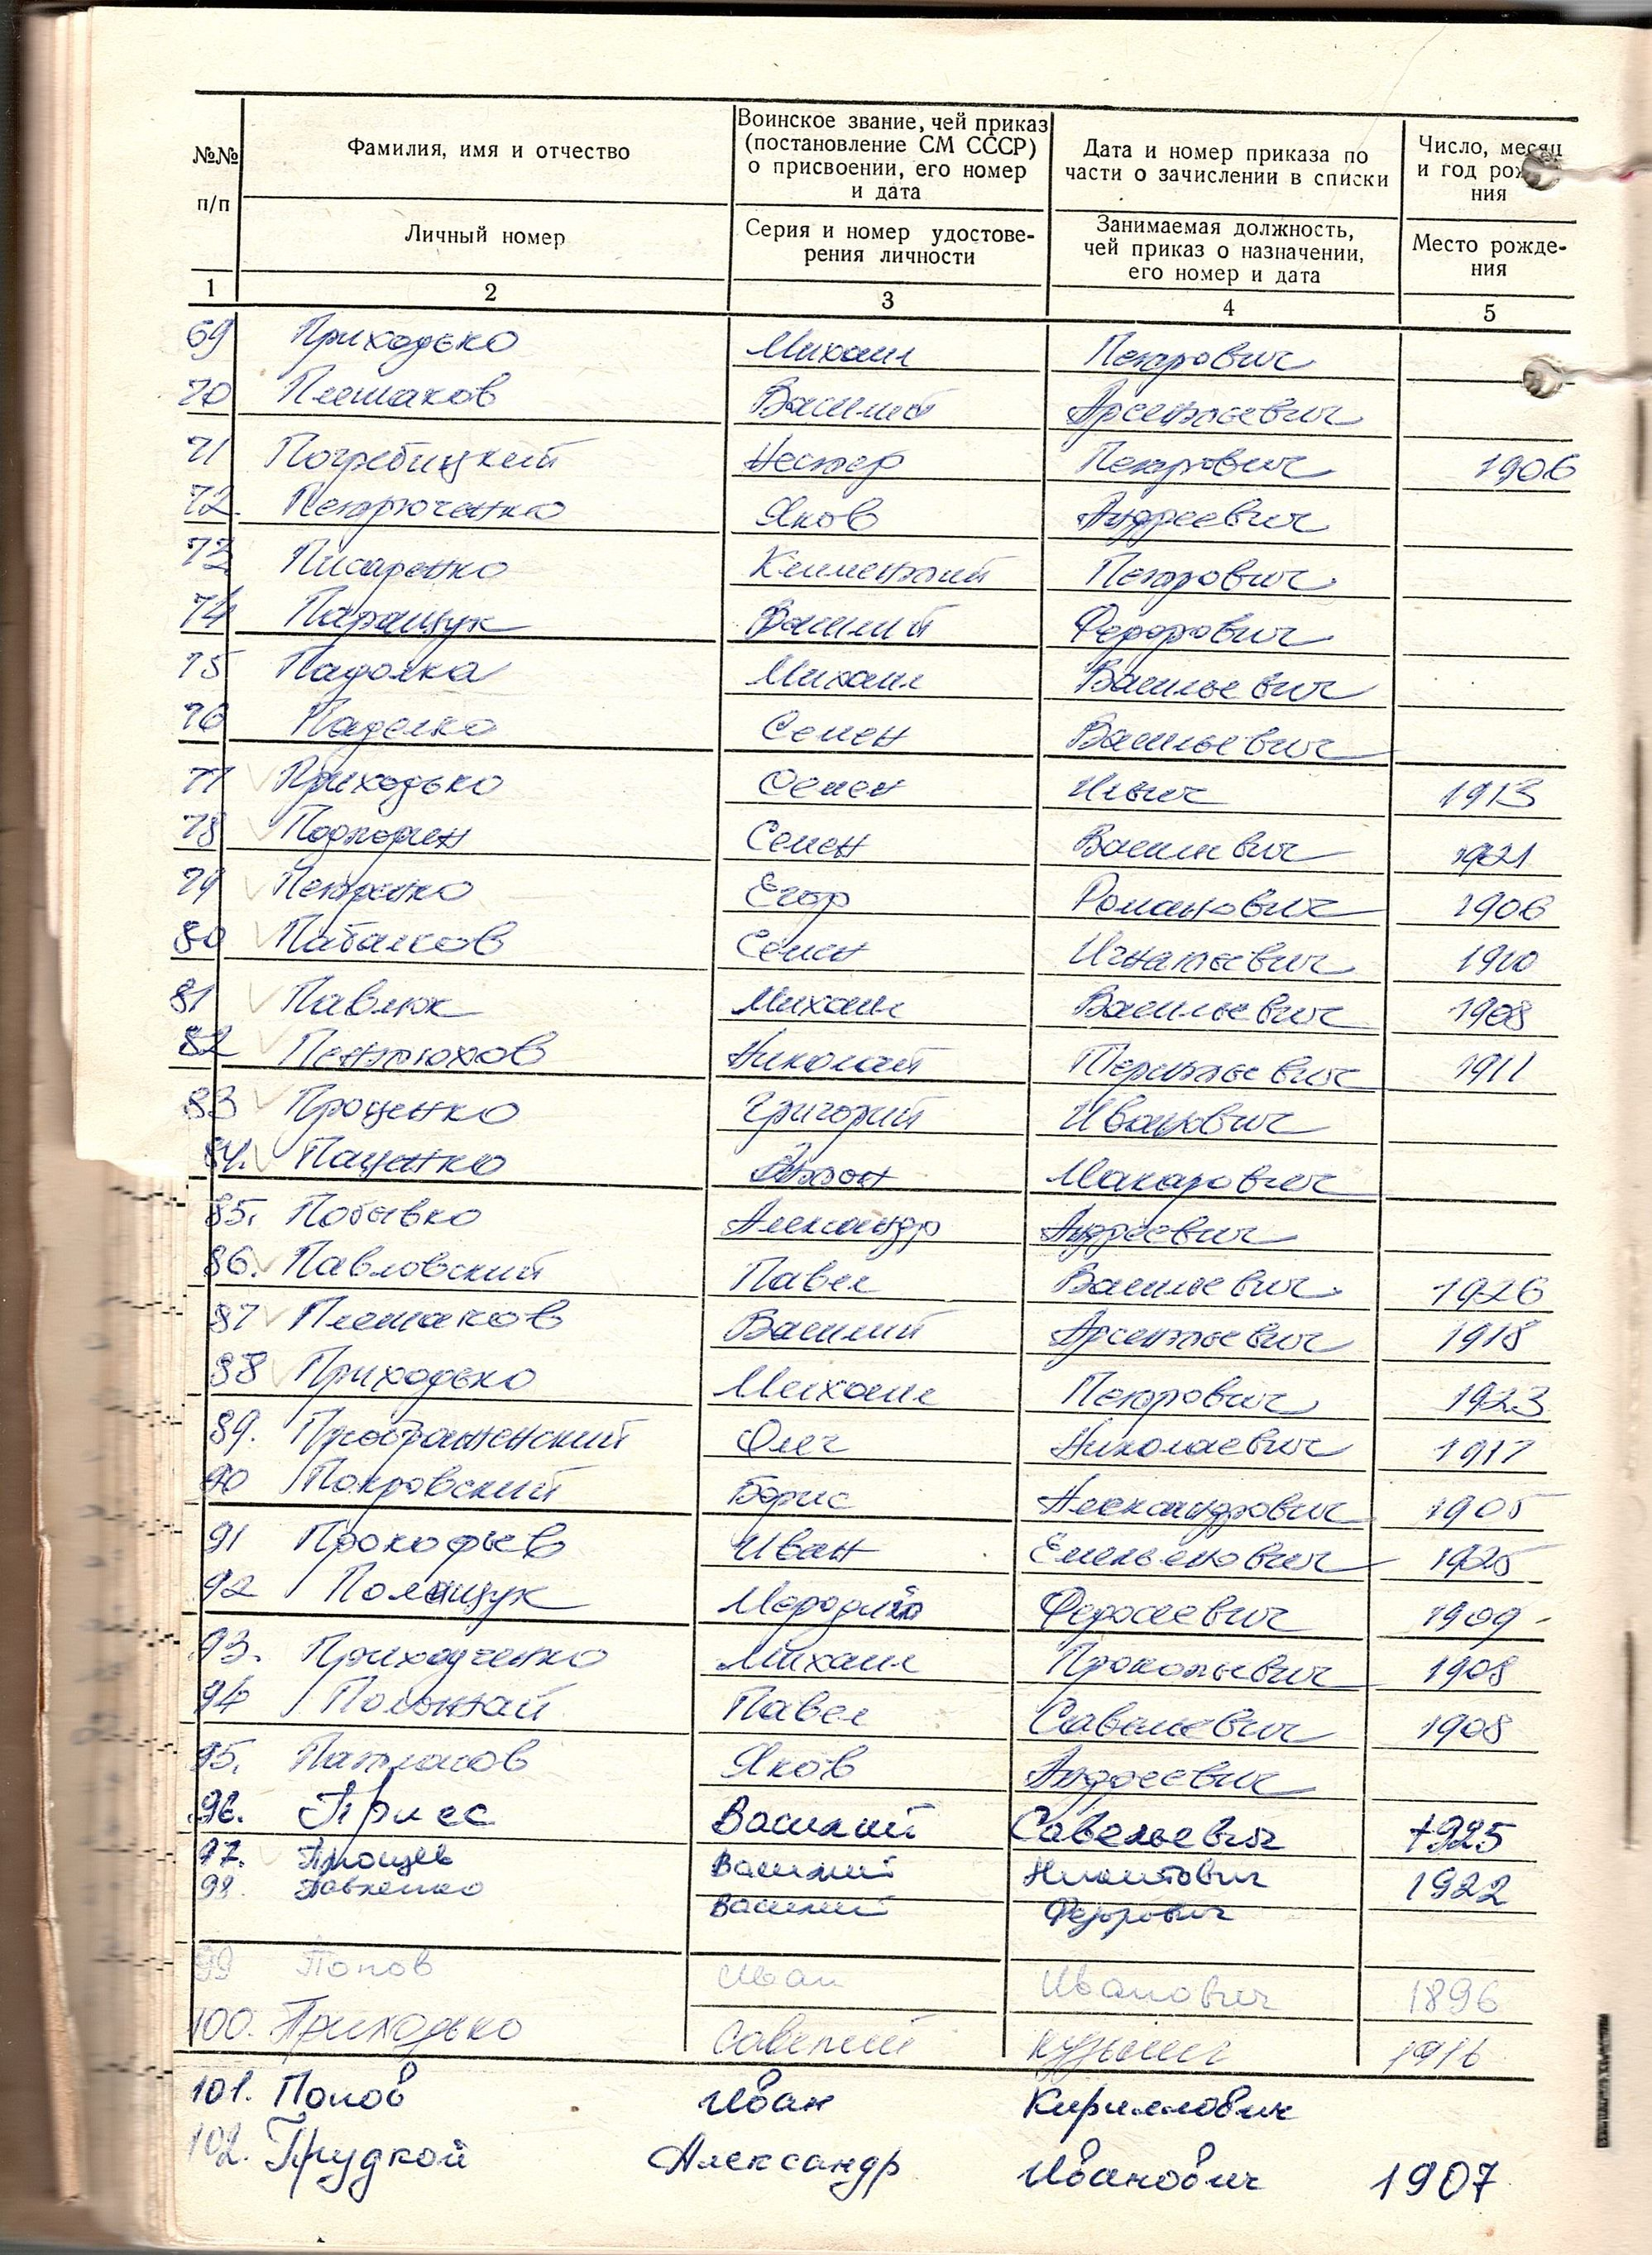 №№ п/п
Фамилия, имя и отчество
Личный номер
Воинское звание, чей приказ
(постановление СМ СССР)
о присвоении, его номер
и дата
Серия и номер удостове-
рения личности
Дата и номер приказа по
части о зачислении в списки
Занимаемая должность,
чей приказ о назначении,
его номер и дата
Число, месяц
и год рож
ния
Место рожде-
ния
1 2 3 4 5
69 Приходько Михаил Петрович
70 Плешаков Василий Арсентьевич
71 Погребицкий Нестер Петрович 1906
72. Петрюченко Яков Андреевич
73 Писаренко Климентий Петрович
74 Паращук Василий Федорович
75 Падолка Михаил Васильевич
76 Паделко Семен Васильевич
77 Приходько Семен Ильич 1913
78 Семен 1921
79 Петренко Егор Романович 1906
80 Семен Игнатьевич 1910
81 Павлюк Михаил Васильевич 1908
82 Пентюхов Николай Терентьевич 1911
83 Проценко Григорий Иванович
84. Паценко Антон Макарович
85. Побывко Александр Андреевич
86. Павловский Павел Васильевич 1926
87 Плешаков Василий Арсентьевич 1918
88 Приходько Михаил Петрович 1923
89. Олег Николаевич 1917
90 Покровский Борис Александрович 1905
91 Прокофьев Иван 1925
92 Полищук 1909
93. Приходченко Михаил Прокопьевич 1908
94 Павел Савельевич 1908
95. Яков Андреевич
96. Приес Василий Савельевич 1925
97. Василий Никитович 1922
98. Павленко Василий Федорович
99 Попов Иван Иванович 1896
100. Приходько Савелий Кузьмич 1916
101. Попов Иван Кириллович
102. Прудкой Александр Иванович 1907